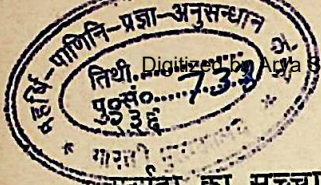 महर्षि-पाणिनि-प्रज्ञा-अनुसन्धान
Digitized by Arya S
तिथी
पु०सं० 733
२३६
का सच्चा